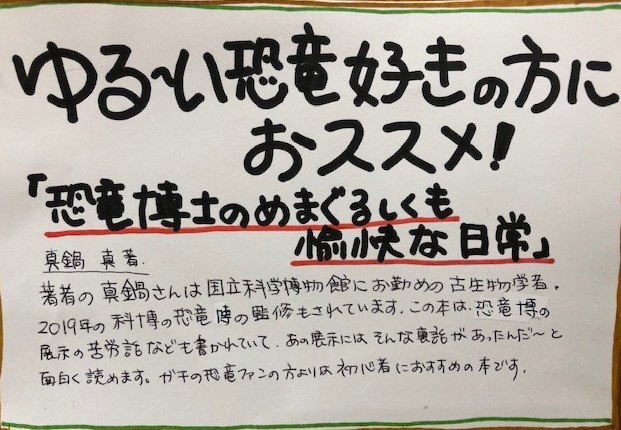 ゆる〜い恐竜好きの方に
おススメ!
「恐竜博士のめまぐるしくも
愉快な日常」
真鍋 真 著.
著者の真鍋さんは国立科学博物館にお勤めの古生物学者。
2019年の科博の恐竜博の監修もされています。この本は、恐竜博の
展示の苦労話なども書かれていて、あの展示にはそんな裏話があったんだ〜と
面白く読めます。ガチの恐竜ファンの方よりは初心者におすすめの本です。